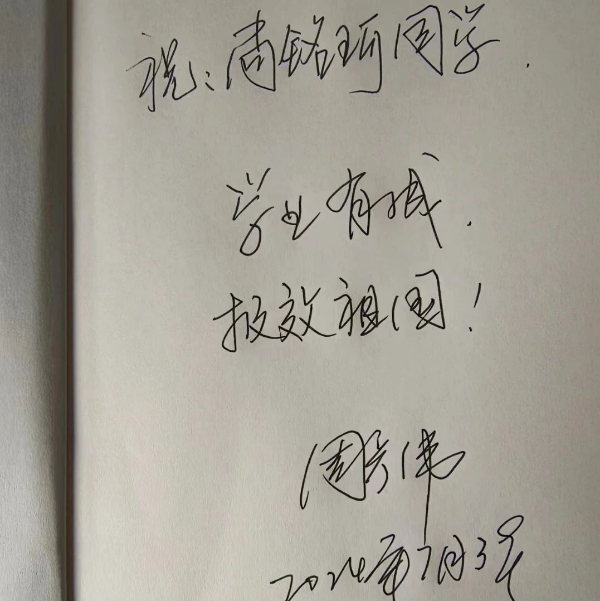 祝:尚铭珂同学.
学业有成.
报效祖国!
周 伟
2024年7月3号